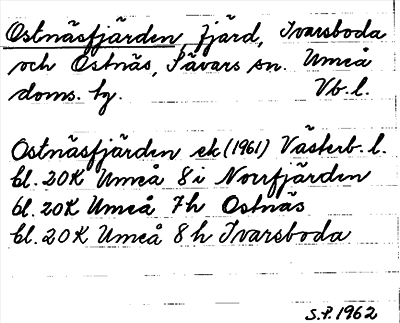 Ostnäsfjärden, fjärd, Ivarsboda
och Ostnäs, Sävars sn. Umeå
doms. hg. Vb. l.
Ostnäsfjärden ek (1961) Västerb. l.
bl. 20K Umeå 8 i Norrfjärden
bl. 20K Umeå 7h Ostnäs
bl. 20K Umeå 8 h Ivarsboda
S.P. 1962